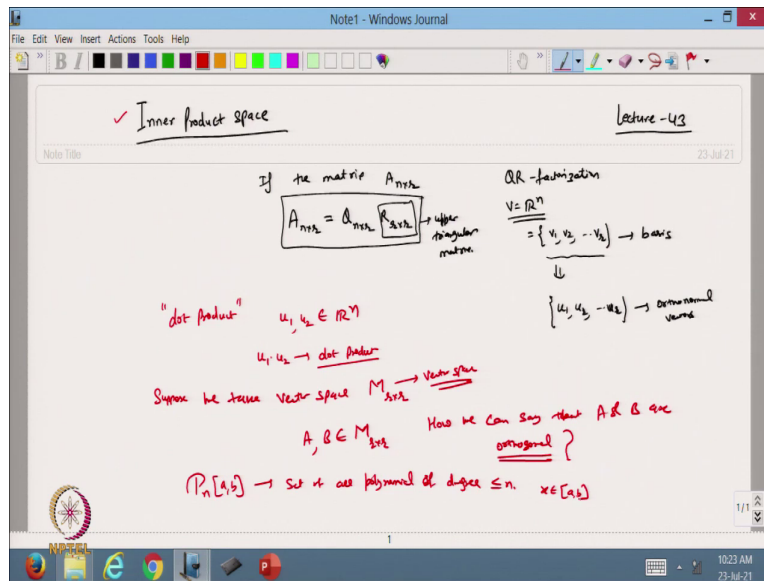 Note1 - Windows Journal
File Edit View Insert Actions Tools Help
B I
Inner Product space
Lecture-43
Note Title
23-Jul-21
If the matrix A_{n×r}
A_{n×r} = Q_{n×r} R_{r×r} → upper triangular matrix.
QR-factorization
V = ℝ^n
= {v_1, v_2, ... v_r} → basis
⇓
{u_1, u_2, ... u_r} → orthonormal
"dot product" u_1, u_2 ∈ ℝ^n
u_1 · u_2 → dot product
Suppose we take vector space M_{r×r} → vector space
A, B ∈ M_{r×r} How we can say that A & B are
orthogonal ?
P_n[a,b] → Set of all polynomial of degree ≤ n. x ∈ [a,b]
1/1
NPTEL
1
10:23 AM
23-Jul-21